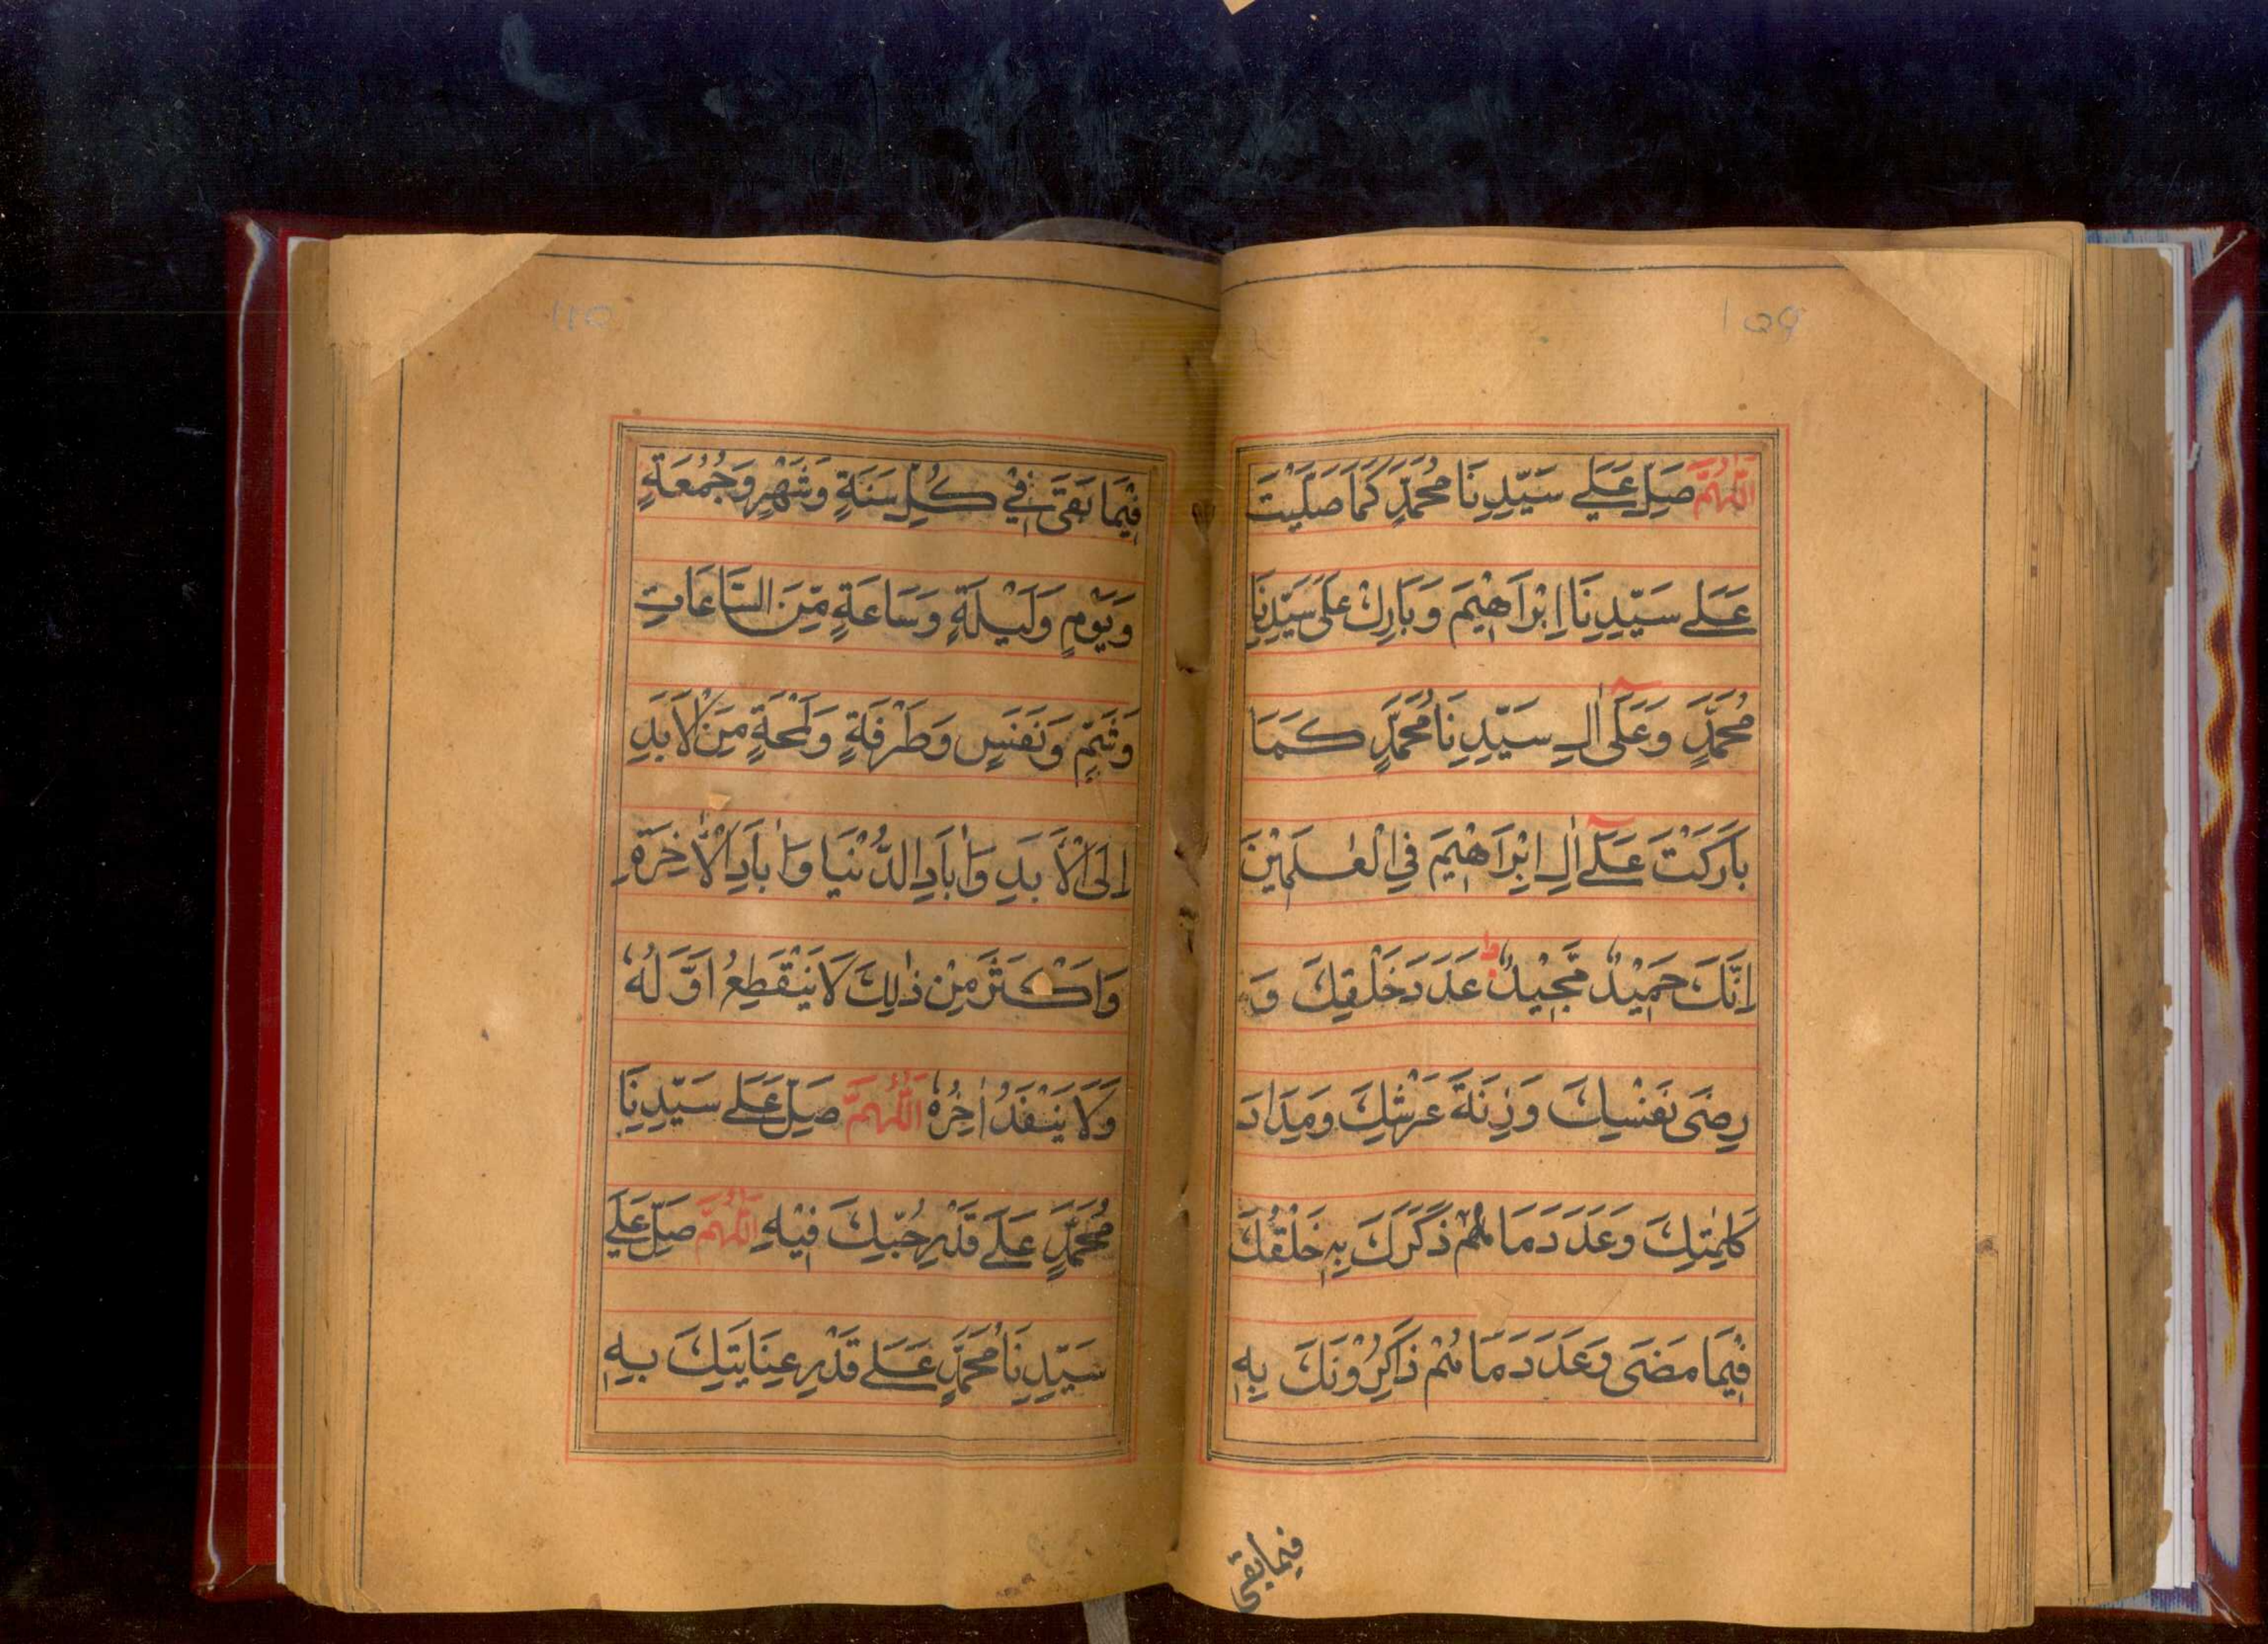 109
اَللّٰهُمَّ صَلِّ عَلٰے سَيِّدِنَا مُحَمَّدٍ كَمَا صَلَّيْتَ
عَلٰے سَيِّدِنَا اِبْرَاهِيْمَ وَبَارِكْ عَلٰى سَيِّدِنَا
مُحَمَّدٍ وَعَلٰٓى اٰلِ سَيِّدِنَا مُحَمَّدٍ كَمَا
بَارَكْتَ عَلٰٓے اٰلِ اِبْرَاهِيْمَ فِي الْعٰلَمِيْنَ
اِنَّكَ حَمِيْدٌ مَّجِيْدٌ ط عَدَدَ خَلْقِكَ وَ
رِضٰى نَفْسِكَ وَزِنَةَ عَرْشِكَ وَمِدَادَ
كَلِمٰتِكَ وَعَدَدَ مَا هُمْ ذَكَرَكَ بِهٖ خَلْقُكَ
فِيْمَا مَضٰى وَعَدَدَ مَا هُمْ ذَاكِرُوْنَكَ بِهٖ
فيما بقى
110
فِيْمَا بَقٰى فِيْ كُلِّ سَنَةٍ وَشَهْرٍ وَجُمُعَةٍ
وَيَوْمٍ وَلَيْلَةٍ وَسَاعَةٍ مِّنَ السَّاعَاتِ
وَشَمٍّ وَنَفَسٍ وَطَرْفَةٍ وَلَمْحَةٍ مِنَ الْاَبَدِ
اِلَى الْاَبَدِ وَاٰبَادِ الدُّنْيَا وَاٰبَادِ الْاٰخِرَةِ
وَاَكْثَرَ مِنْ ذٰلِكَ لَا يَنْقَطِعُ اَوَّلُهٗ
وَلَا يَنْفَدُ اٰخِرُهٗ اَللّٰهُمَّ صَلِّ عَلٰے سَيِّدِنَا
مُحَمَّدٍ عَلٰے قَدْرِ حُبِّكَ فِيْهِ اَللّٰهُمَّ صَلِّ عَلٰے
سَيِّدِنَا مُحَمَّدٍ عَلٰے قَدْرِ عِنَايَتِكَ بِهٖ